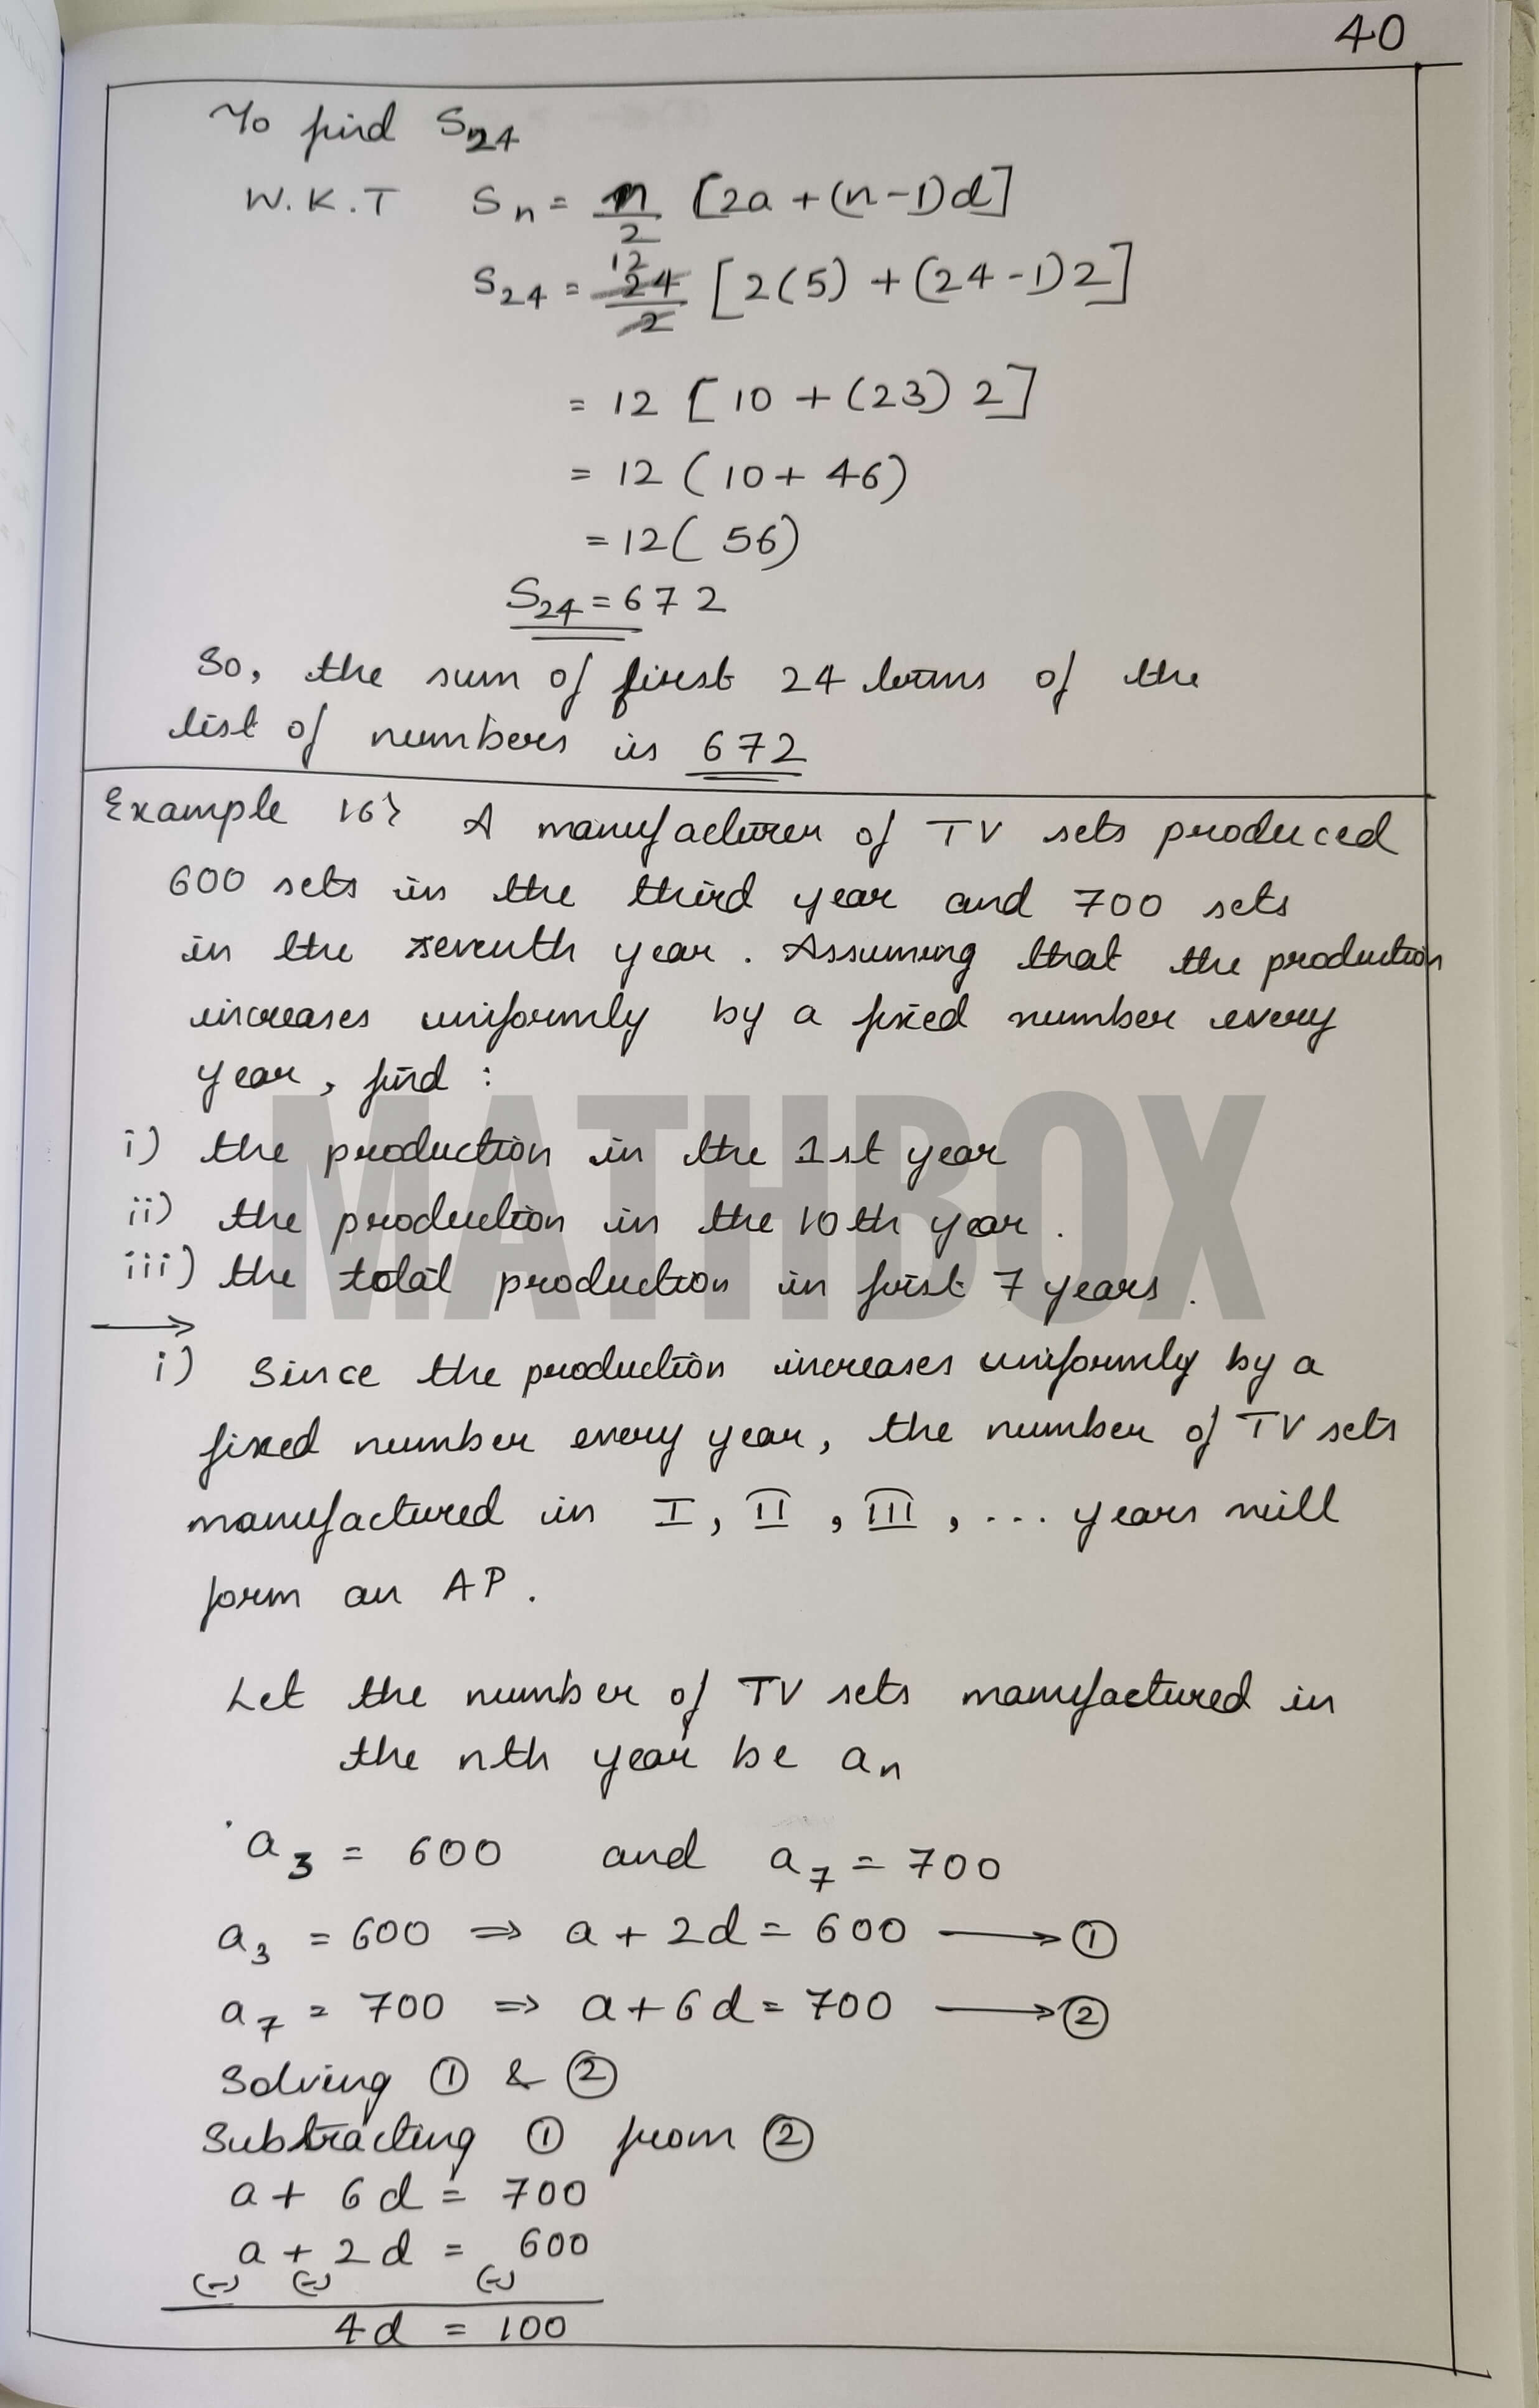 40
To find S₂₄
W.K.T Sₙ = n/2 [2a + (n-1)d]
12
S₂₄ = 24/2 [2(5) + (24-1)2]
= 12 [10 + (23) 2]
= 12 (10 + 46)
= 12 (56)
S₂₄ = 672
So, the sum of first 24 terms of the
list of numbers is 672
Example 16} A manufacturer of TV sets produced
600 sets in the third year and 700 sets
in the seventh year. Assuming that the production
increases uniformly by a fixed number every
year, find :
i) the production in the 1st year
ii) the production in the 10th year.
iii) the total production in first 7 years.
MATHBOX
→
i) Since the production increases uniformly by a
fixed number every year, the number of TV sets
manufactured in I, II, III, ... years will
form an AP.
Let the number of TV sets manufactured in
the nth year be aₙ
a₃ = 600 and a₇ = 700
a₃ = 600 ⇒ a + 2d = 600 ⟶ ①
a₇ = 700 ⇒ a + 6d = 700 ⟶ ②
Solving ① & ②
Subtracting ① from ②
a + 6d = 700
a + 2d = 600
(-) (-) (-)
4d = 100